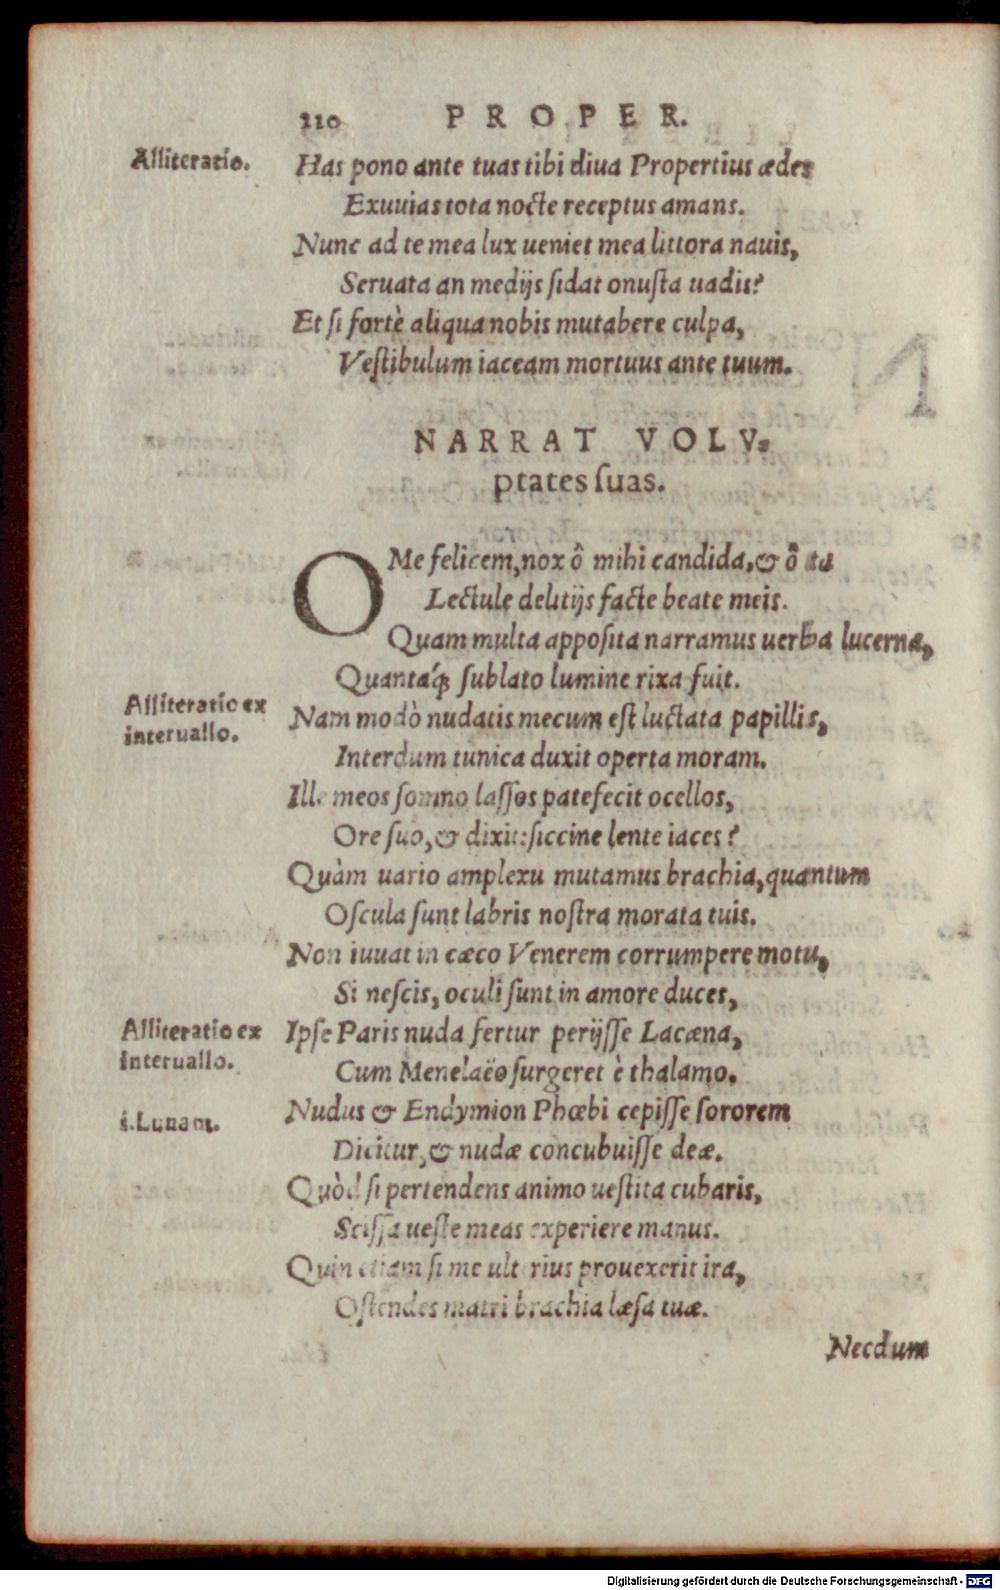 110 PROPER.
Alliteratio.
Has pono ante tuas tibi diua Propertius ædes
Exuuias tota nocte receptus amans.
Nunc ad te mea lux ueniet mea littora nauis,
Seruata an medijs sidat onusta uadis?
Et si fortè aliqua nobis mutabere culpa,
Vestibulum iaceam mortuus ante tuum.
NARRAT VOLV-
ptates suas.
O Me felicem, nox ô mihi candida, & ô tu
Lectule delitijs facte beate meis.
Quam multa apposita narramus uerba lucerna,
Quantaq́; sublato lumine rixa fuit.
Alliteratio ex
interuallo.
Nam modò nudatis mecum est luctata papillis,
Interdum tunica duxit operta moram.
Illa meos somno lassos patefecit ocellos,
Ore suo, & dixit: siccine lente iaces?
Quàm uario amplexu mutamus brachia, quantum
Oscula sunt labris nostra morata tuis.
Non iuuat in cæco Venerem corrumpere motu,
Si nescis, oculi sunt in amore duces,
Alliteratio ex
interuallo.
Ipse Paris nuda fertur perijsse Lacæna,
Cum Menelaëo surgeret è thalamo.
i. Lunam.
Nudus & Endymion Phœbi cepisse sororem
Dicitur, & nudæ concubuisse deæ.
Quòd si pertendens animo uestita cubaris,
Scissa ueste meas experiere manus.
Quin etiam si me ulterius prouexerit ira,
Ostendes matri brachia læsa tuæ.
Necdum
Digitalisierung gefördert durch die Deutsche Forschungsgemeinschaft - DFG